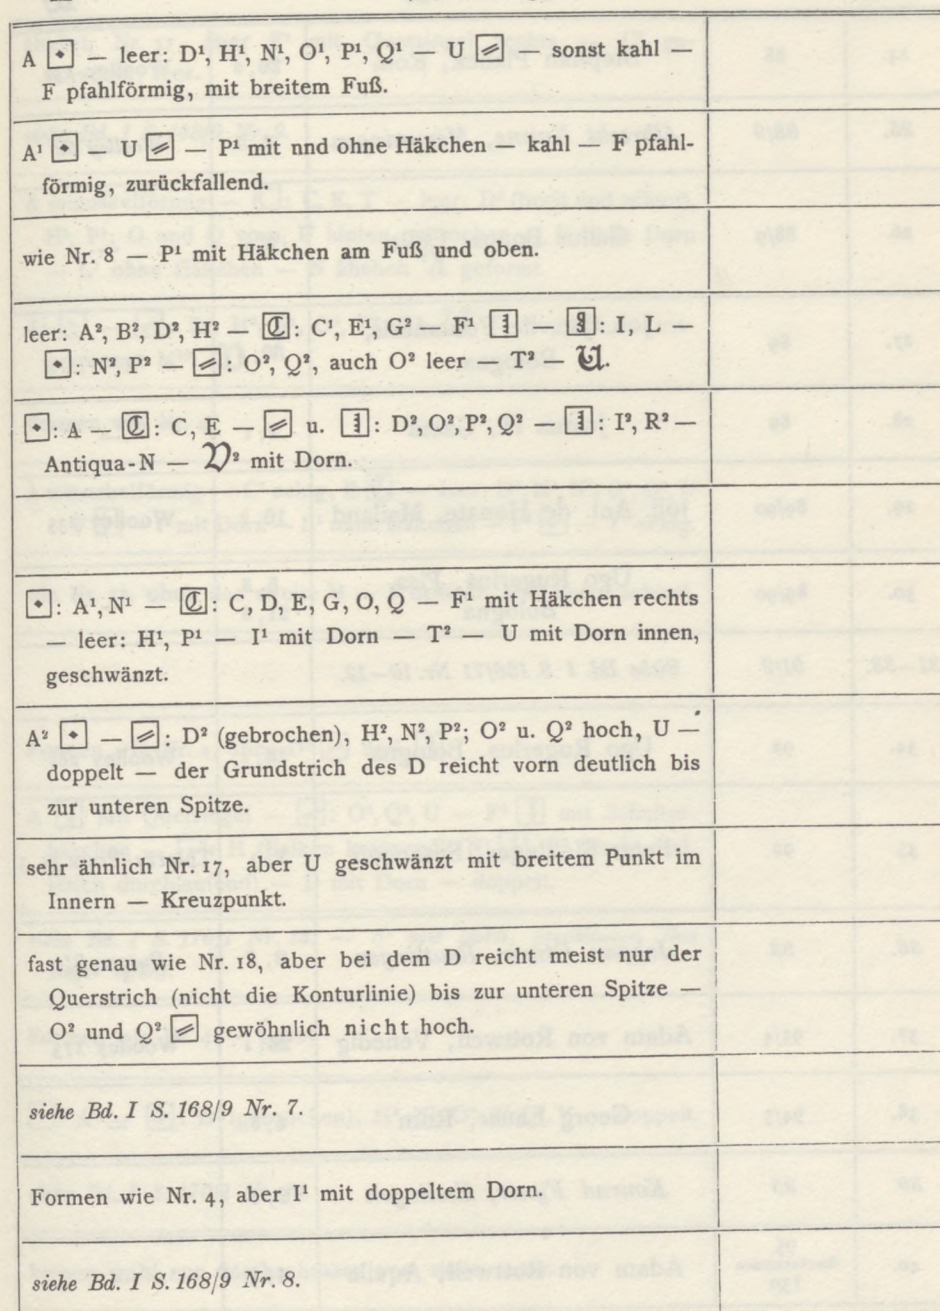 A — leer: D¹, H¹, N¹, O¹, P¹, Q¹ — U — sonst kahl —
F pfahlförmig, mit breitem Fuß.
A¹ — U — P¹ mit nnd ohne Häkchen — kahl — F pfahl-
förmig, zurückfallend.
wie Nr. 8 — P¹ mit Häkchen am Fuß und oben.
leer: A², B², D², H² — ℭ: C¹, E¹, G² — F¹ — : I, L —
: N², P² — : O², Q², auch O² leer — T² — 𝔘.
: A — ℭ: C, E — u. : D², O², P², Q² — : I², R² —
Antiqua-N — 𝔇² mit Dorn.
: A¹, N¹ — ℭ: C, D, E, G, O, Q — F¹ mit Häkchen rechts
— leer: H¹, P¹ — I¹ mit Dorn — T² — U mit Dorn innen,
geschwänzt.
A² — : D² (gebrochen), H², N², P²; O² u. Q² hoch, U —
doppelt — der Grundstrich des D reicht vorn deutlich bis
zur unteren Spitze.
sehr ähnlich Nr. 17, aber U geschwänzt mit breitem Punkt im
Innern — Kreuzpunkt.
fast genau wie Nr. 18, aber bei dem D reicht meist nur der
Querstrich (nicht die Konturlinie) bis zur unteren Spitze —
O² und Q² gewöhnlich nicht hoch.
siehe Bd. I S. 168/9 Nr. 7.
Formen wie Nr. 4, aber I¹ mit doppeltem Dorn.
siehe Bd. I S. 168/9 Nr. 8.